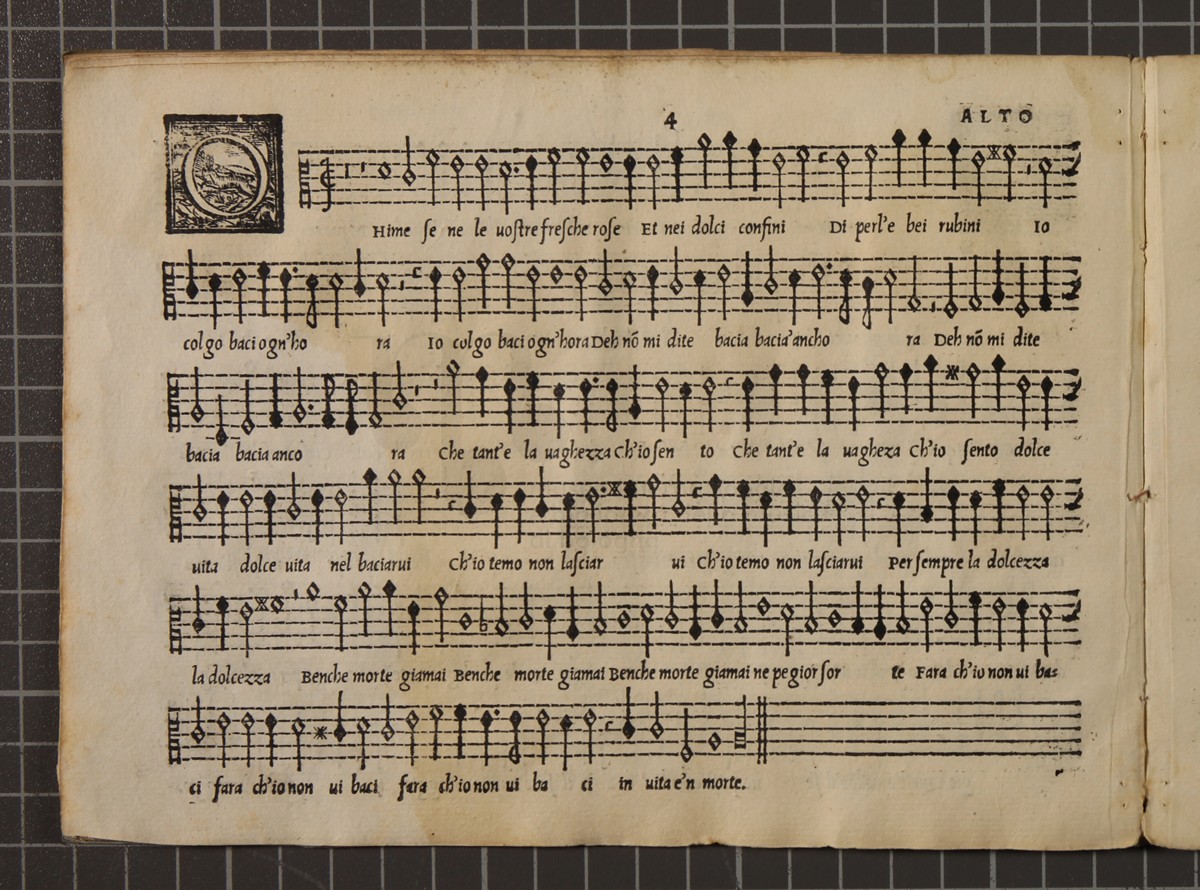 4
ALTO
OHime se ne le uostre fresche rose Et nei dolci confini Di perl'e bei rubini Io
colgo baci ogn'ho ra Io colgo baci ogn'hora Deh nõ mi dite bacia bacia'ancho ra Deh nõ mi dite
bacia bacia anco ra Che tant'e la uaghezza Ch'io sen to Che tant'e la uagheza Ch'io sento dolce
uita dolce uita nel baciarui Ch'io temo non lasciar ui Ch'io temo non lasciarui Per sempre la dolcezza
la dolcezza Benche morte giamai Benche morte giamai Benche morte giamai ne pegior sor te Fara ch'io non ui ba=
ci fara ch'io non ui baci fara ch'io non ui ba ci in uita e'n morte.